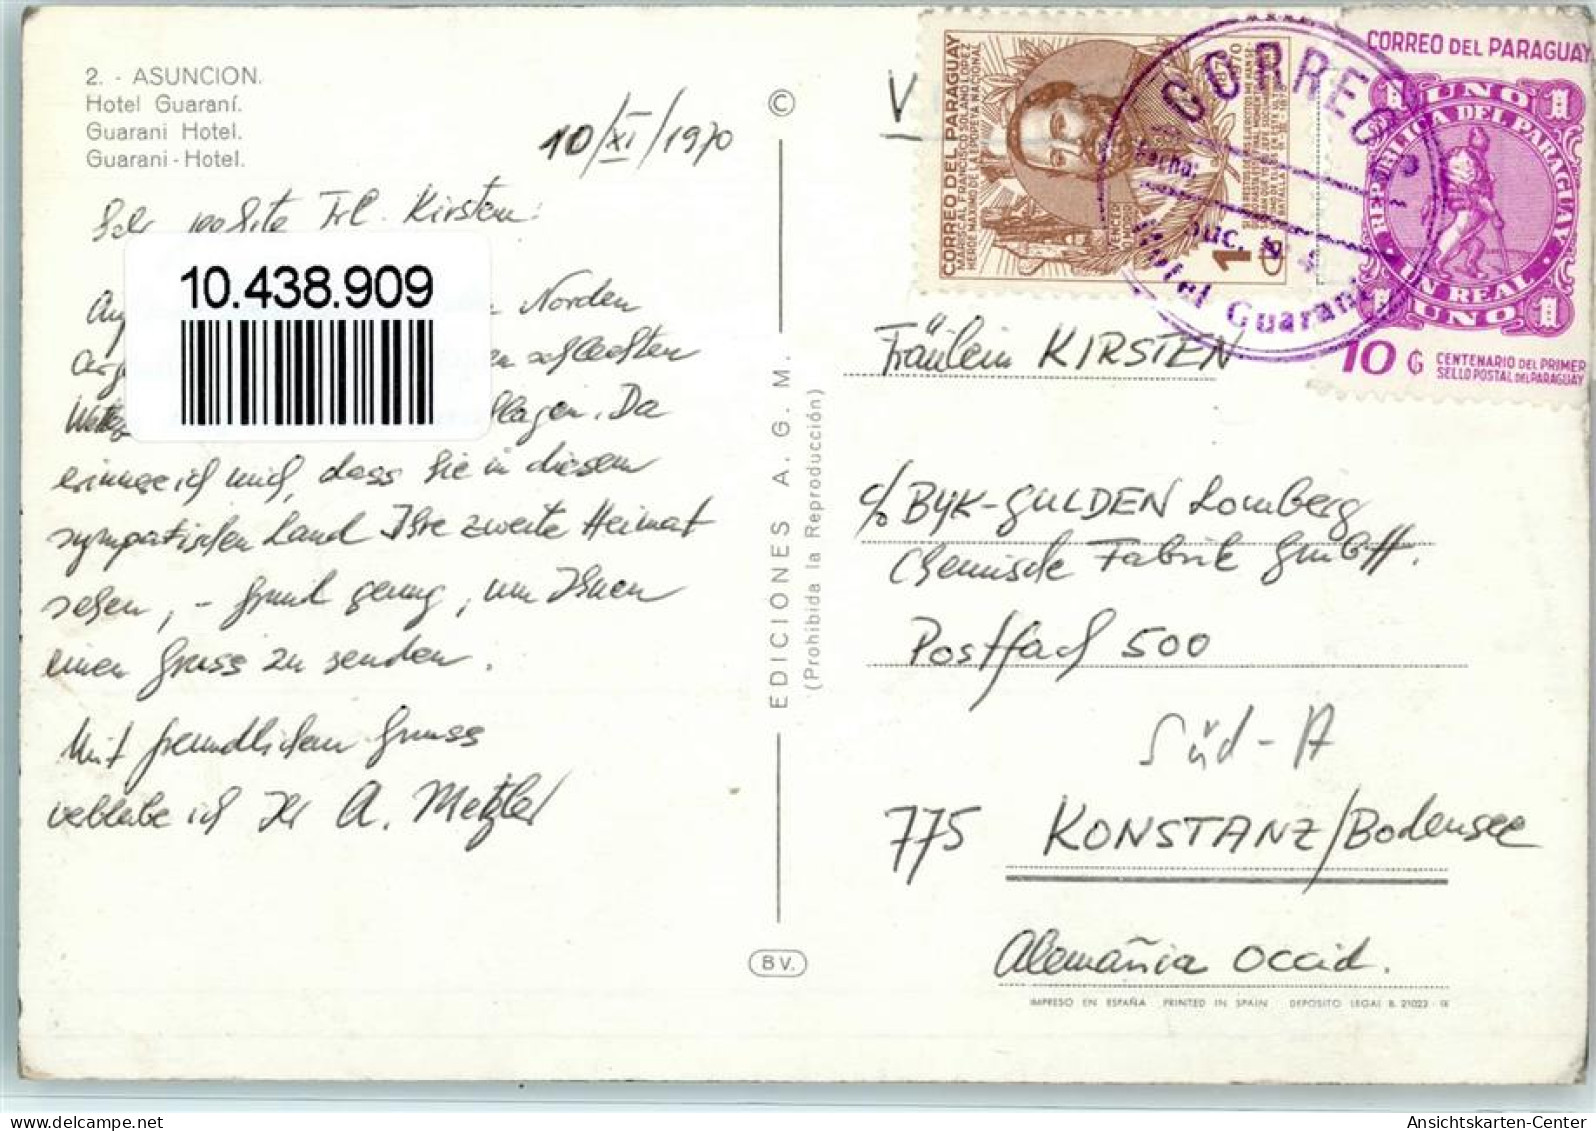 2. - ASUNCION.
Hotel Guaraní.
Guarani Hotel.
Guarani-Hotel.
10/XI/1970
Sehr verehrte Frl. Kirsten:
10.438.909
Norden
schlechten
Da
erinnere ich mich, dass Sie in diesem
sympatischen Land Ihre zweite Heimat
sehen, - Grund genug, um Ihnen
einen Gruss zu senden.
Mit freundlichem Gruss
verbleibe ich Ihr A. Metzler
©
EDICIONES A. G. M.
(Prohibida la Reproducción)
BV.
V
CORREO DEL PARAGUAY
MARISCAL FRANCISCO SOLANO LOPEZ
HEROE MAXIMO DE LA EPOPEYA NACIONAL
VENCER O MORIR
1870
1970
CORREO
Fecha:
Suc. Nº 4
Hotel Guarani
CORREO DEL PARAGUAY
UNO
REPUBLICA DEL PARAGUAY
UN REAL
UNO
10 G
CENTENARIO DEL PRIMER
SELLO POSTAL DEL PARAGUAY
Fräulein KIRSTEN
c/o BYK-GULDEN Lomberg
Chemische Fabrik GmbH.
Postfach 500
Süd-A
775 KONSTANZ/Bodensee
Alemañia Occid.
IMPRESO EN ESPAÑA PRINTED IN SPAIN DEPOSITO LEGAL B. 21023 - IX
oldthing.com
Ansichtskarten-Center